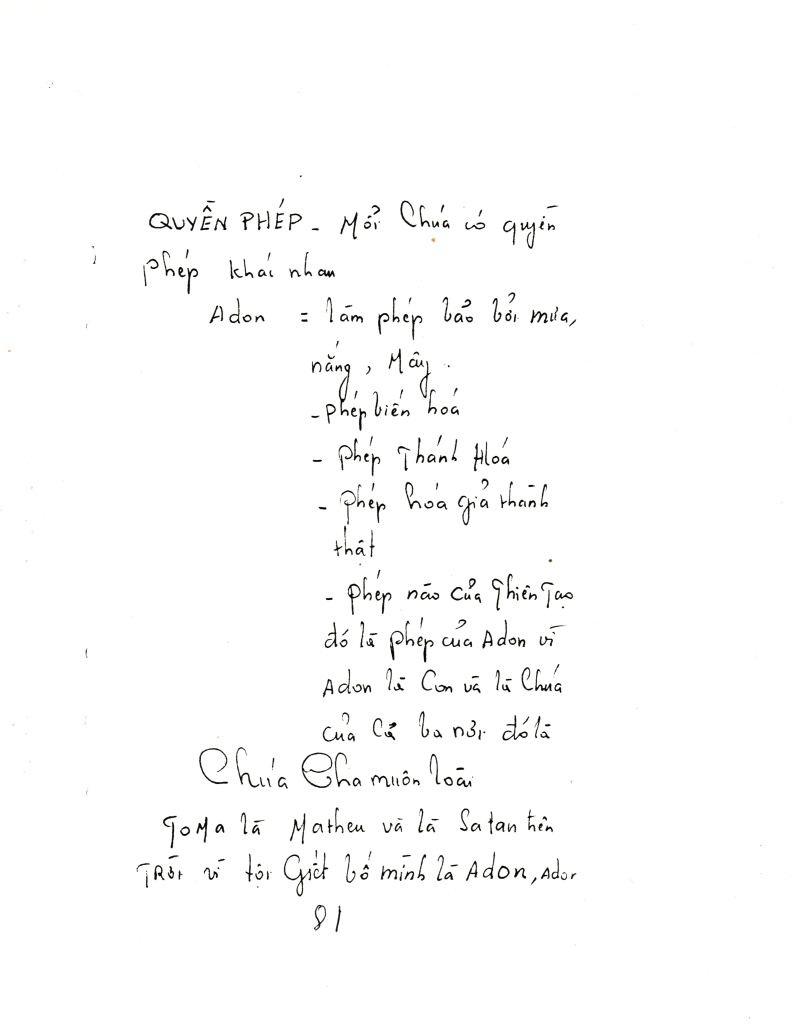 QUYỀN PHÉP - Mỗi Chúa có quyền
phép khác nhau
Adon = làm phép bảo bởi mưa,
nắng, Mây.
- phép biến hoá
- phép Thánh Hoá
- phép hóa giả thành
thật
- phép nào của Thiên Tạo
đó là phép của Adon vì
Adon là Con và là Chúa
của Cả ba nơi đó là
Chúa Cha muôn loài
ToMa là Matheu và là Satan trên
TRời vì tội Giết bố mình là Adon, Ador
81